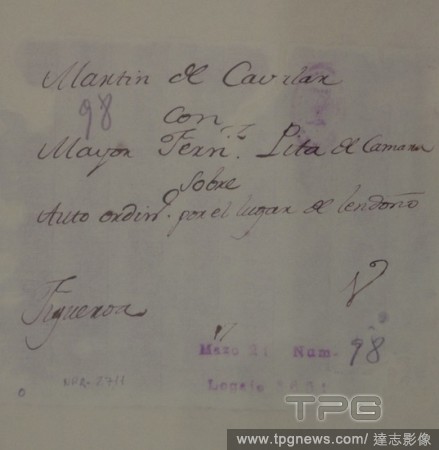 Martin de Cavrlan
98
Con
Mayor Fern.z Pita de Camara
Sobre
Auto ordin.o por el lugar de lendoño
Figueroa
V
Mazo 2 Num- 98
Legajo
NUR-27/1
TPG
www.tpgnews.com/達志影像